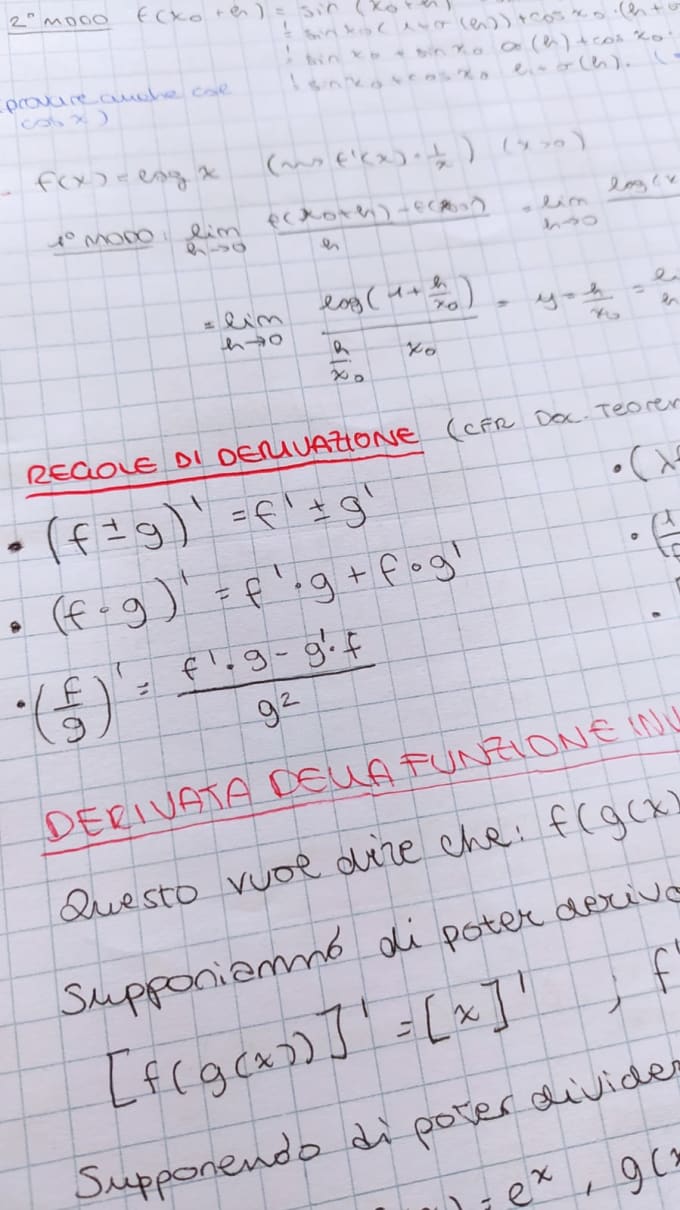 2° MODO f(x₀+h) = sin (x₀+h)
= sin x₀ (1+o(h)) + cos x₀ · (h+o
= sin x₀ + sin x₀ o(h) + cos x₀
= sin x₀ + cos x₀ h + o(h).
provare anche con
cos x)
- f(x) = log x (⇝ f'(x) = 1/x) (x>0)
1° MODO: lim h→0 (f(x₀+h) - f(x₀))/h = lim h→0 log(x
= lim h→0 log(1 + h/x₀) / (h/x₀ x₀) = y = h/x₀ =
REGOLE DI DERIVAZIONE (CFR DOC. TEOREM
• (f ± g)' = f' ± g' • (λ
• (f · g)' = f' · g + f · g' • (1/f
• (f/g)' = (f' · g - g' · f)/g² •
DERIVATA DELLA FUNZIONE INV
Questo vuol dire che: f(g(x)
Supponiamo di poter deriva
[f(g(x))]' = [x]' ; f'
Supponendo di poter divider
) = eˣ , g(x